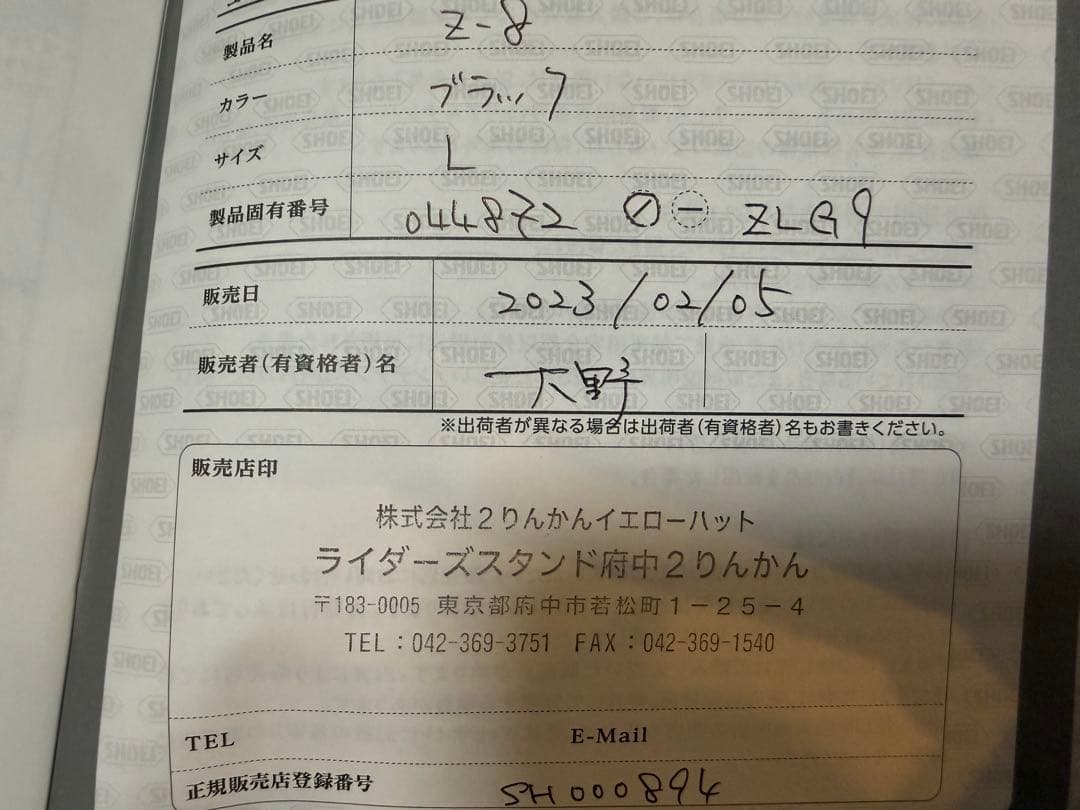 製品名 Z-8
カラー ブラック
サイズ L
製品固有番号 044872 ⊘ ⊖ ZLG9
販売日 2023/02/05
販売者(有資格者)名 大野
※出荷者が異なる場合は出荷者(有資格者)名もお書きください。
販売店印
株式会社2りんかんイエローハット
ライダーズスタンド府中2りんかん
〒183-0005 東京都府中市若松町1-25-4
TEL:042-369-3751 FAX:042-369-1540
TEL E-Mail
正規販売店登録番号 SH000894